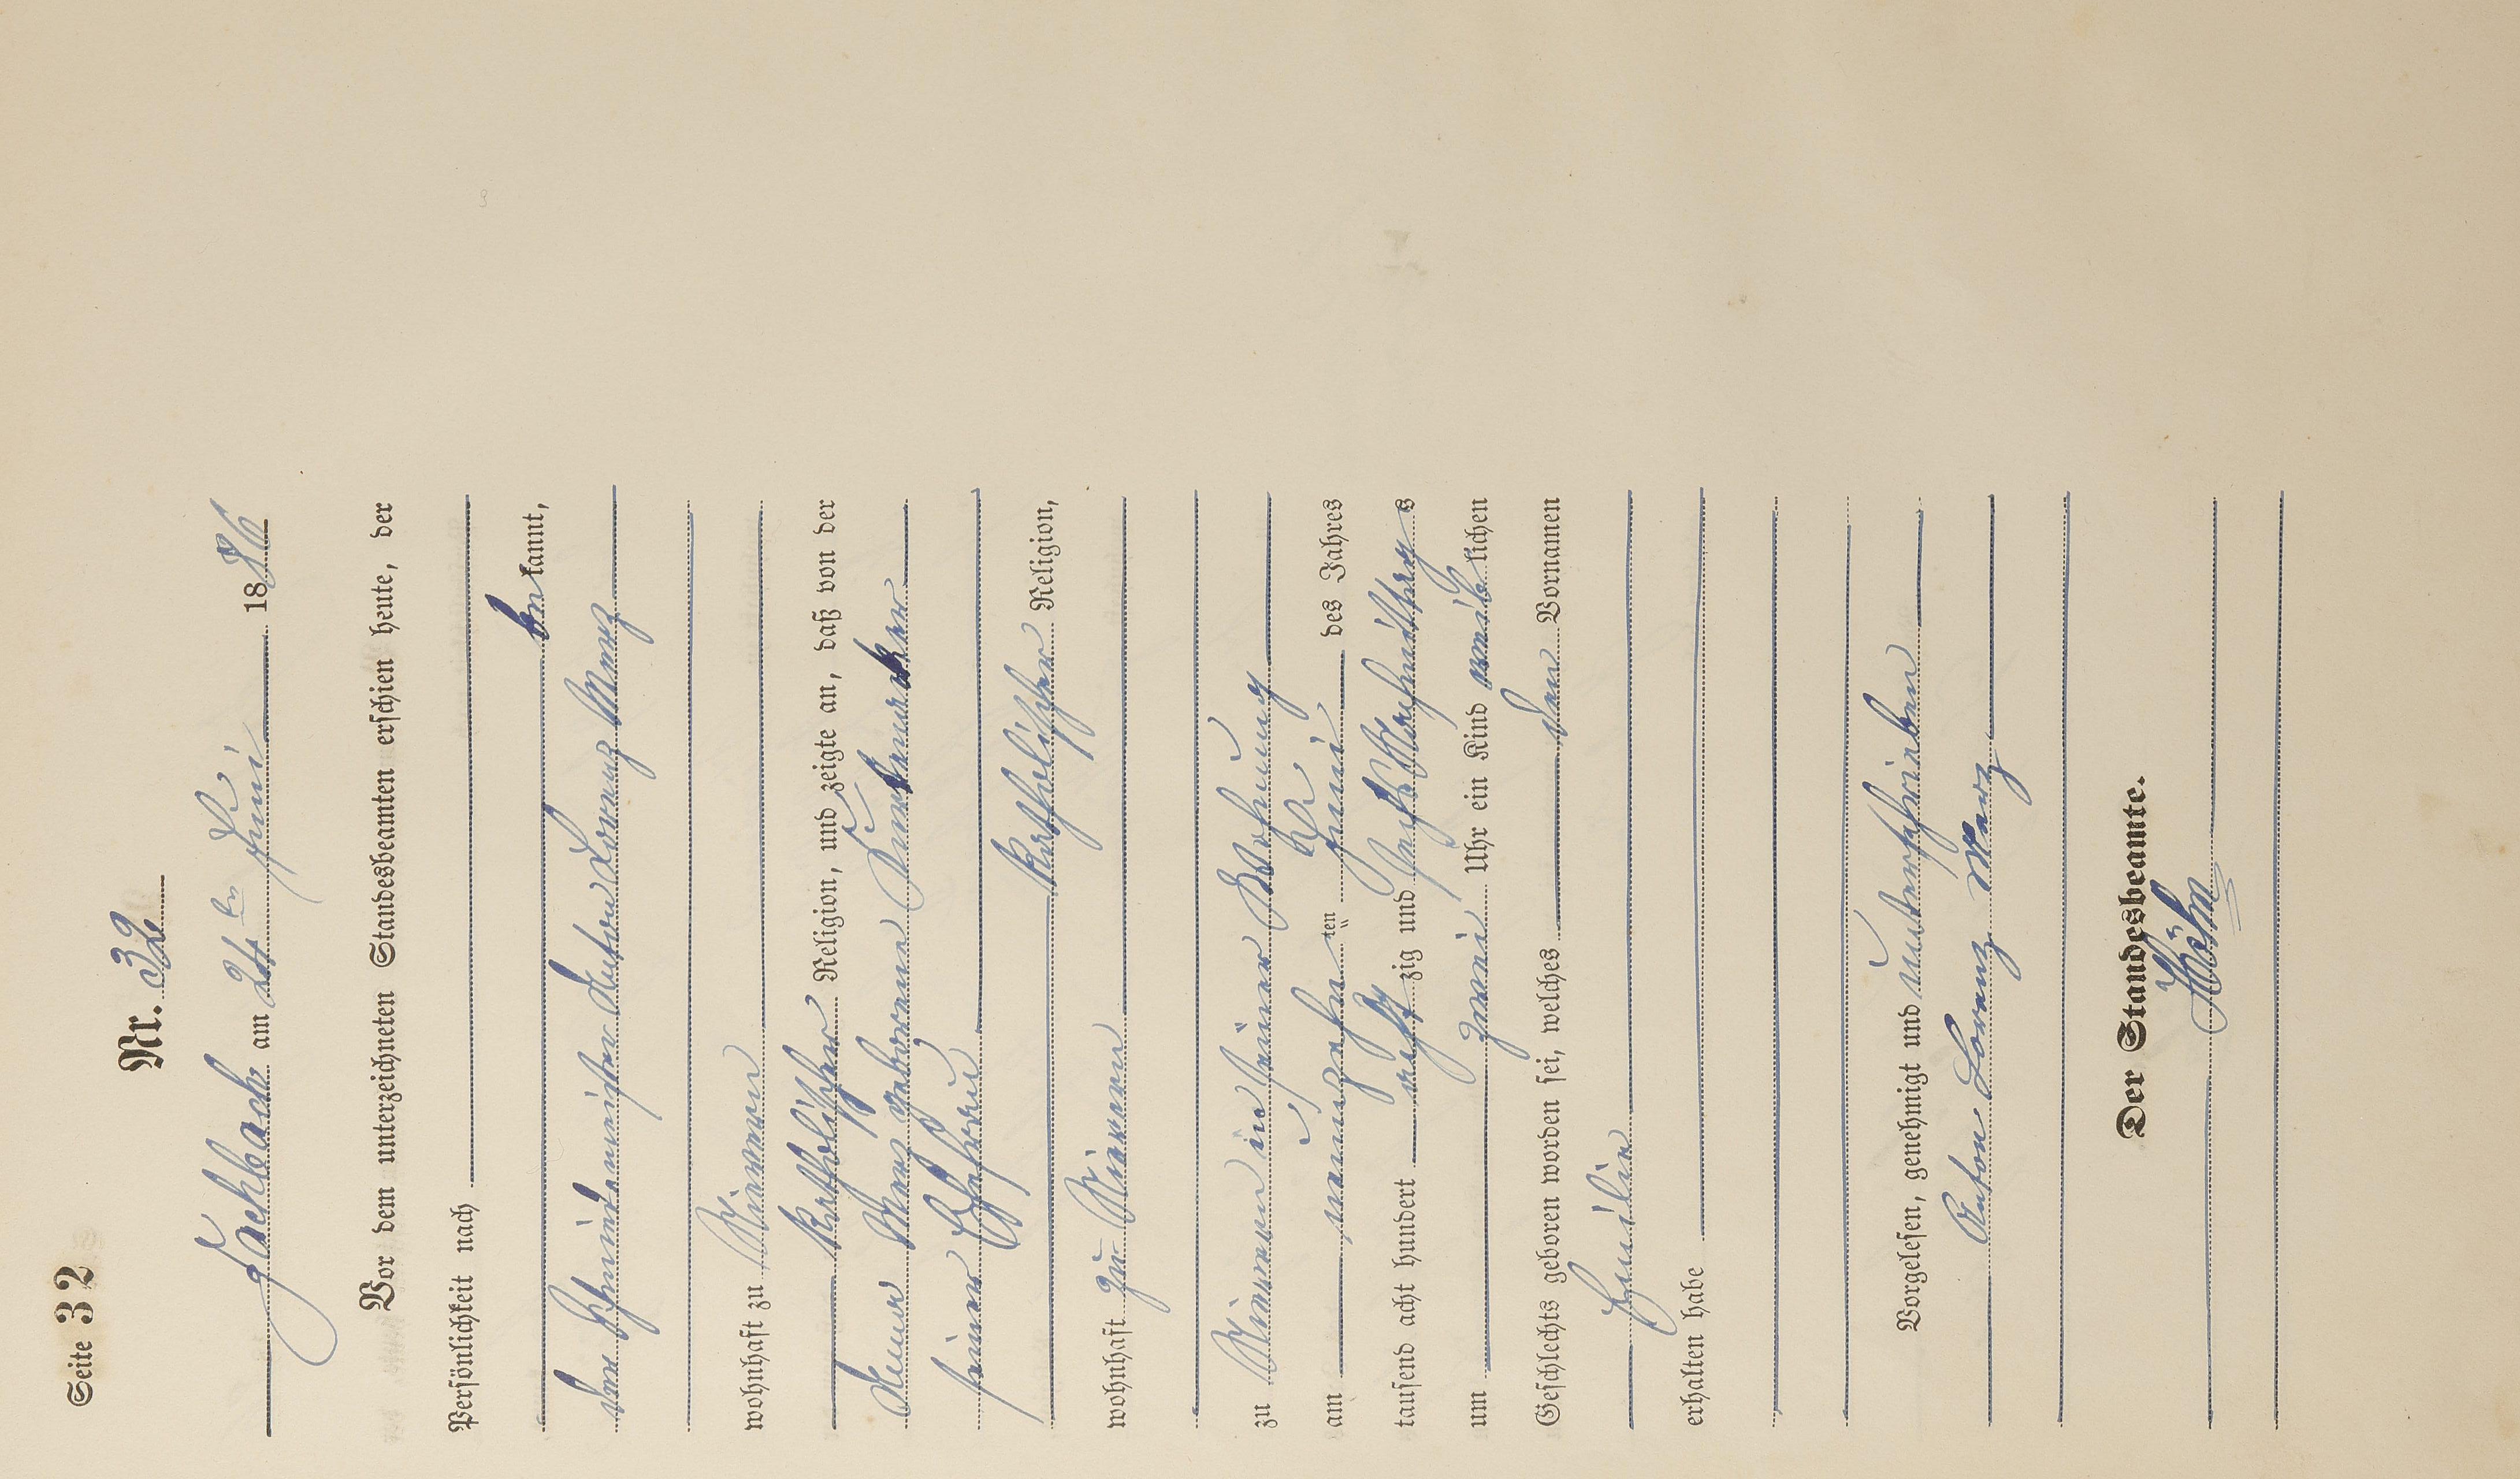 Seite 32
Nr. 32
Fachbach am 21ten Juni 1886
Vor dem unterzeichneten Standesbeamten erschien heute, der
Persönlichkeit nach
bekannt,
der Schmiedemeister Anton Lorenz Merz
wohnhaft zu Nievern
katholischer Religion, und zeigte an, daß von der
Anna Merz geborene
seiner Ehefrau
katholischer Religion,
wohnhaft zu Nievern
zu Nievern in seiner Wohnung
am neunzehnten Juni des Jahres
tausend acht hundert achtzig und sechs Nachmittags
um zwei Uhr ein Kind weiblichen
Geschlechts geboren worden sei, welches den Vornamen
Emilie
erhalten habe
Vorgelesen, genehmigt und unterschrieben
Anton Lorenz Merz
Der Standesbeamte.